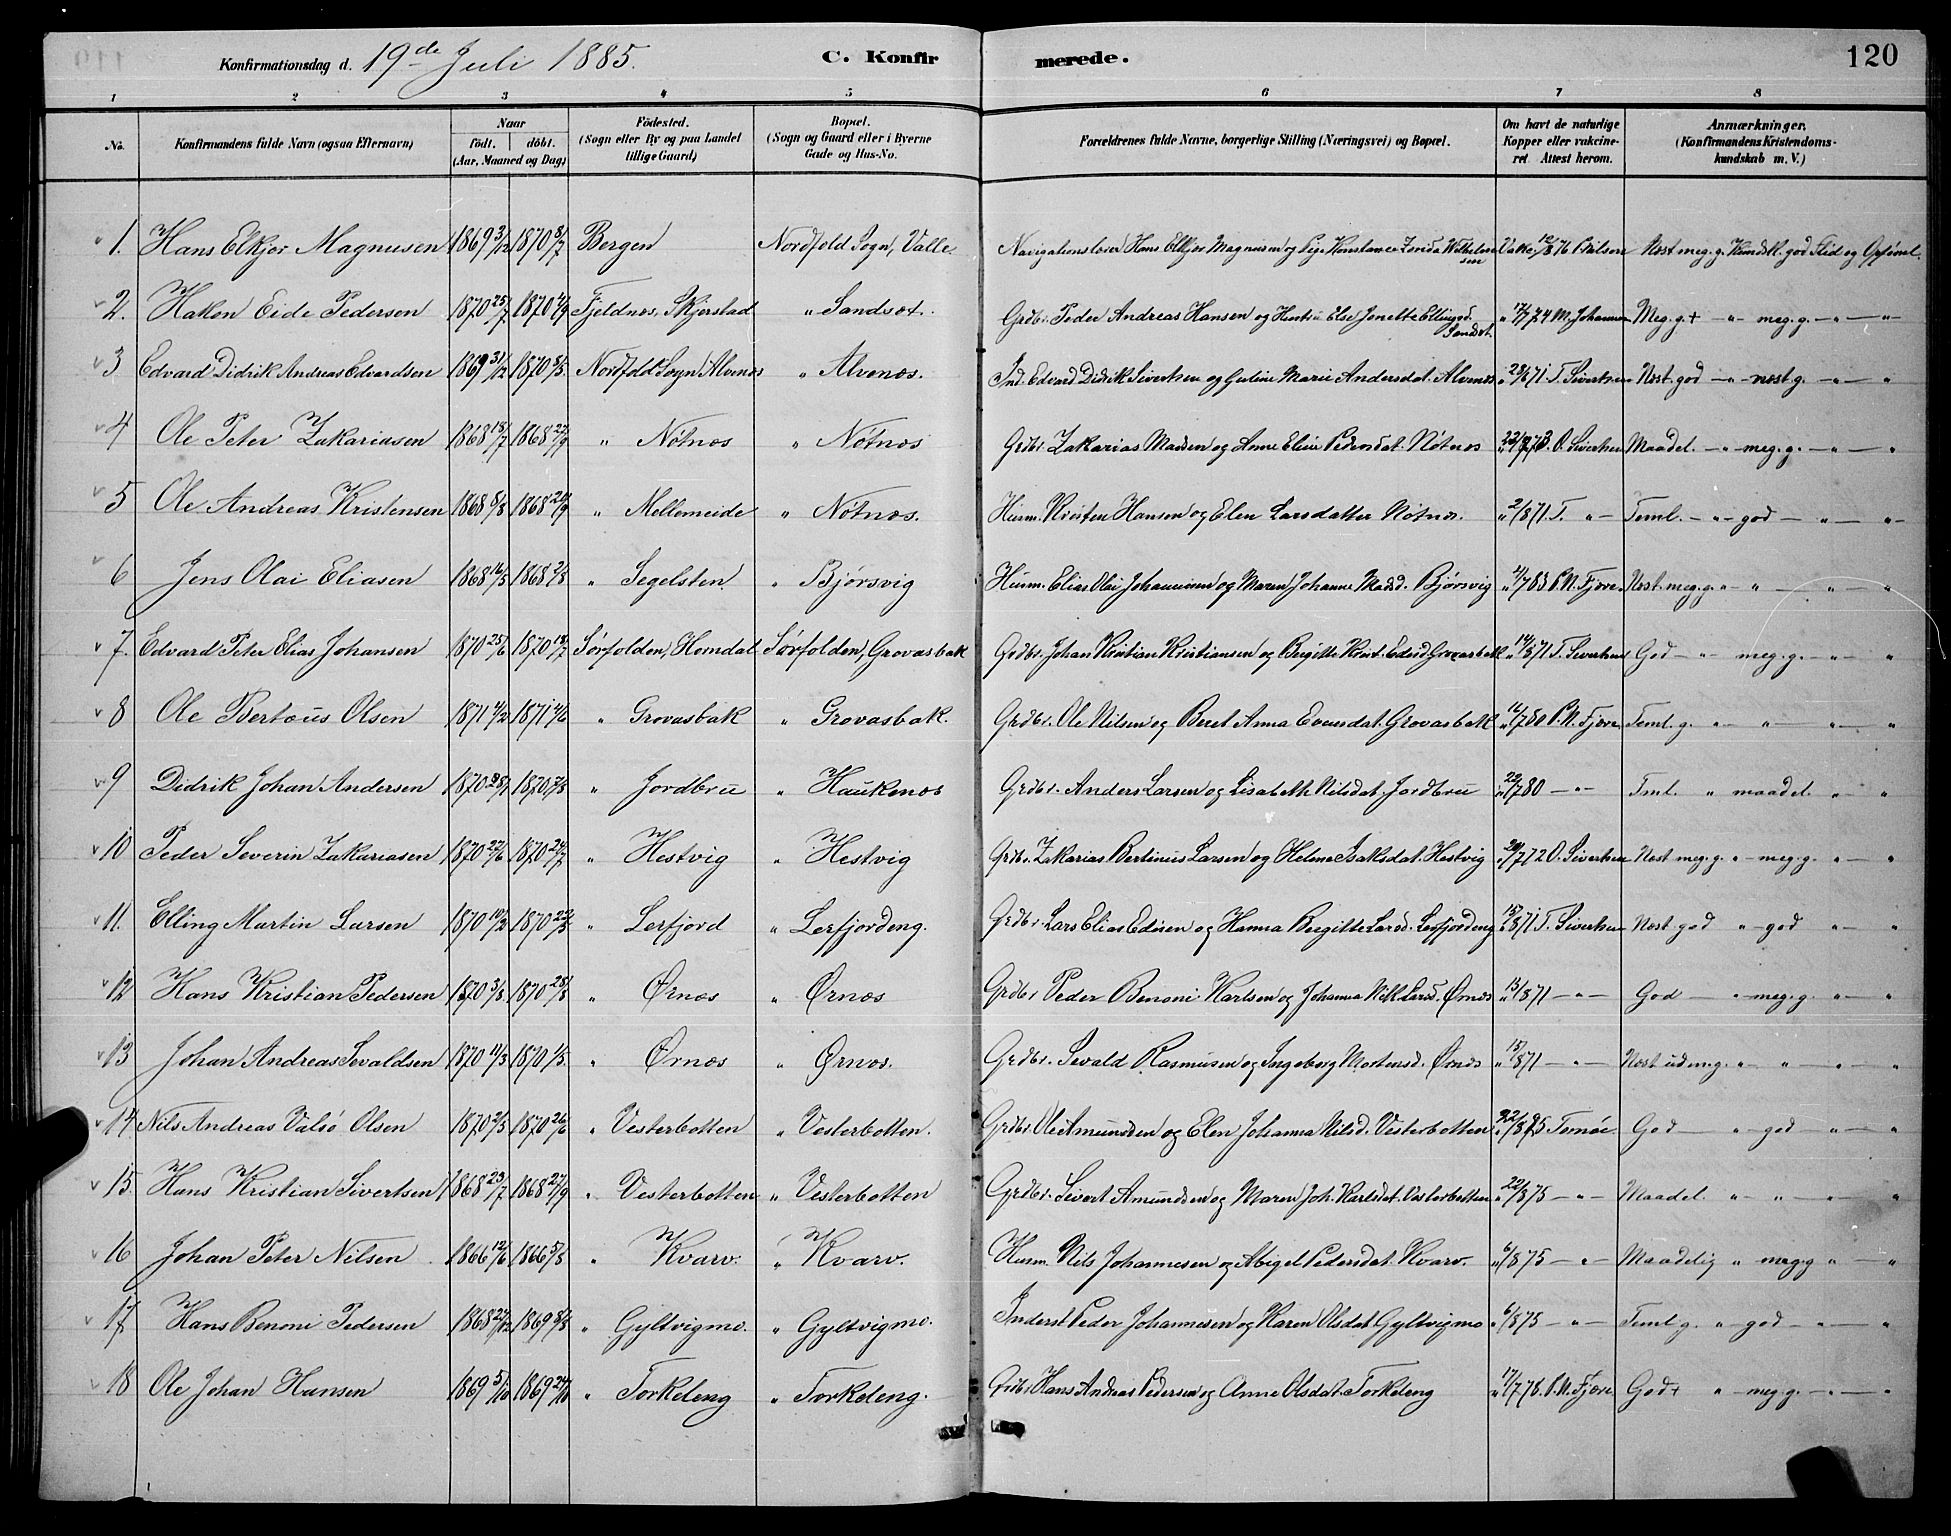 Konfirmationsdag d. 19de Juli 1885. C. Konfirmerede. 120
1 2 3 4 5 6 7 8
No. Konfirmandens fulde Navn (ogsaa Efternavn) Naar født. døbt. (Aar, Maaned og Dag) Fødested. (Sogn eller By og paa Landet tillige Gaard) Bopæl. (Sogn og Gaard eller i Byerne Gade og Hus-No. Forældrenes fulde Navne, borgerlige Stilling (Næringsvei) og Bopæl. Om havt de naturlige Kopper eller vakcineret Attest herom. Anmærkninger. (Konfirmandens Kristendomskundskab m. V.)
1. Hans Elkjør Magnusen 1869 3/12 1870 3/7 Bergen Nordfold Sogn, Valle Navigationslærer Hans Elkjør Magnusen og Pige Konstance Wilhelmsen Vakc. 12/8 76 Nilsen Næst meg. g. Kundsk. god Flid og Opførsel.
2. Hakon Eide Pedersen 1870 25/7 1870 4/9 Fjeldnes, Skjerstad " Sandset. Grdbr. Peder Andreas Hansen og Hustru Else Jonetta Ellingsd. Sandset. " 17/7 74 M. Johannsen Meg. g. + — " — meg. g. — " — " —
3 Edvard Didrik Andreas Edvardsen 1869 31/12 1870 8/5. Nordfold Sogn Alvenes " Alvenes. Ind. Edvard Didrik Sivertsen og Gurine Marie Andersdat. Alvenes " 28/6 71 T. Sivertsen Næst. god — " — næst g. — " — "
4 Ole Peter Zakariasen 1868 18/7 1868 27/9 " Nøtnes " Nøtnes Grdbr. Zakarias Madsen og Anne Eline Pedersdat. Nøtnes " 22/7 73. O. Sivertsen Maadel. — " — meg. g. — " — "
5 Ole Andreas Kristensen 1868 8/8 1868 20/9 " Mellemeide " Nøtnes. Husm. Kristen Hansen og Elen Larsdatter Nøtnes. " 2/8 71. T. " — Teml. — " — god — " — " —
6 Jens Olai Eliasen 1868 16/5 1868 2/8 " Segelsten " Bjørsvig Husm. Elias Olai Johannesen og Maren Johanne Madsd. Bjørsvig " 4/7 83 P. N. Fjære. Næst meg. g. " — " — " — "
7. Edvard Peter Elias Johansen 1870 25/6 1870 17/7 Sørfolden, Homdal Sørfolden, Grovasbak Grdbr. Johan Kristian Kristiansen og Birgitte Krist. Edisd. Grovasbakk " 14/8 71 T. Sivertsen God — " — meg. g. — " — "
8 Ole Bertæus Olsen 1871 4/2 1871 4/6 " Grovasbak " Grovasbak. Grdbr. Ole Nilsen og Beret Anna Evensdat. Grovasbakk " 16/7 80 P. N. Fjære Teml. g. " — " — " — "
9 Didrik Johan Andersen 1870 28/1 1870 7/8 " Jordbru " Haukenes Grdbr. Anders Larsen og Lisabeth Nilsdat. Jordbru " 22/7 80 — " — Tml. " maadel. " — "
10 Peder Severin Zakariasen 1870 27/6 1870 24/7 " Hestvig " Hestvig Grdbr. Zakarias Bertinus Larsen og Helene Isaksdat. Hestvig " 20/7 72 O. Sivertsen Næst meg. g. " — meg. g. " — "
11. Elling Martin Larsen 1870 10/2 1870 22/5 " Lerfjord " Lerfjordeng. Grdbr. Lars Elias Edisen og Hanna Birgitte Larsd. Lerfjordeng " 15/8 71 T. Sivertsen Næst god " — god " — "
12 Hans Kristian Pedersen 1870 3/8. 1870 28/8 " Ørnes " Ørnes Grdbr. Peder Benoni Karlsen og Johanna Nik. Larsd. Ørnes " 13/8 71 — " — God — " — meg. g. " — "
13 Johan Andreas Sevaldsen 1870 11/3 1870 1/5. " Ørnes " Ørnes. Grdbr. Sevald Rasmusen og Ingeborg Mortensd. Ørnes " 15/8 71 — " — Næst ud meg. " — " — " — "
14 Nils Andreas Valsø Olsen 1870 2/5 1870 26/6 " Vesterbotten " Vesterbotten. Grdbr. Ole Amundsen og Elen Johanna Nilsd. Vesterbotten " 22/8 75 Temøe God — " — god — " — "
15. Hans Kristian Sivertsen 1868 23/7 1868 27/9 " Vesterbotten " Vesterbotten Grdbr. Sivert Amundsen og Maren Joh. Karlsdat. Vesterbotten " 22/8 75 — " — Maadel. " — " — " — "
16 Johan Peter Nilsen 1866 12/6 1866 5/8 " Kvarv. " Kvarv. Husm. Nils Johannesen og Abigel Pedersdat. Kvarv. " 6/8 75 — " — Maadelig " meg. g " — "
17. Hans Benoni Pedersen 1868 27/12 1869 8/8 " Gyltvigmo. " Gyltvigmo. Inderst Peder Johannesen og Karen Olsdat. Gyltvigmo " 6/8 75 — " — Teml. g. " — god — " — "
18 Ole Johan Hansen 1869 5/10 1869 24/10 " Torkeleng " Torkeleng. Grdbr. Hans Andreas Pedersen og Anne Olsdat. Torkeleng " 17/7 78. P. N. Fjære. God + " — meg. g. — " — "